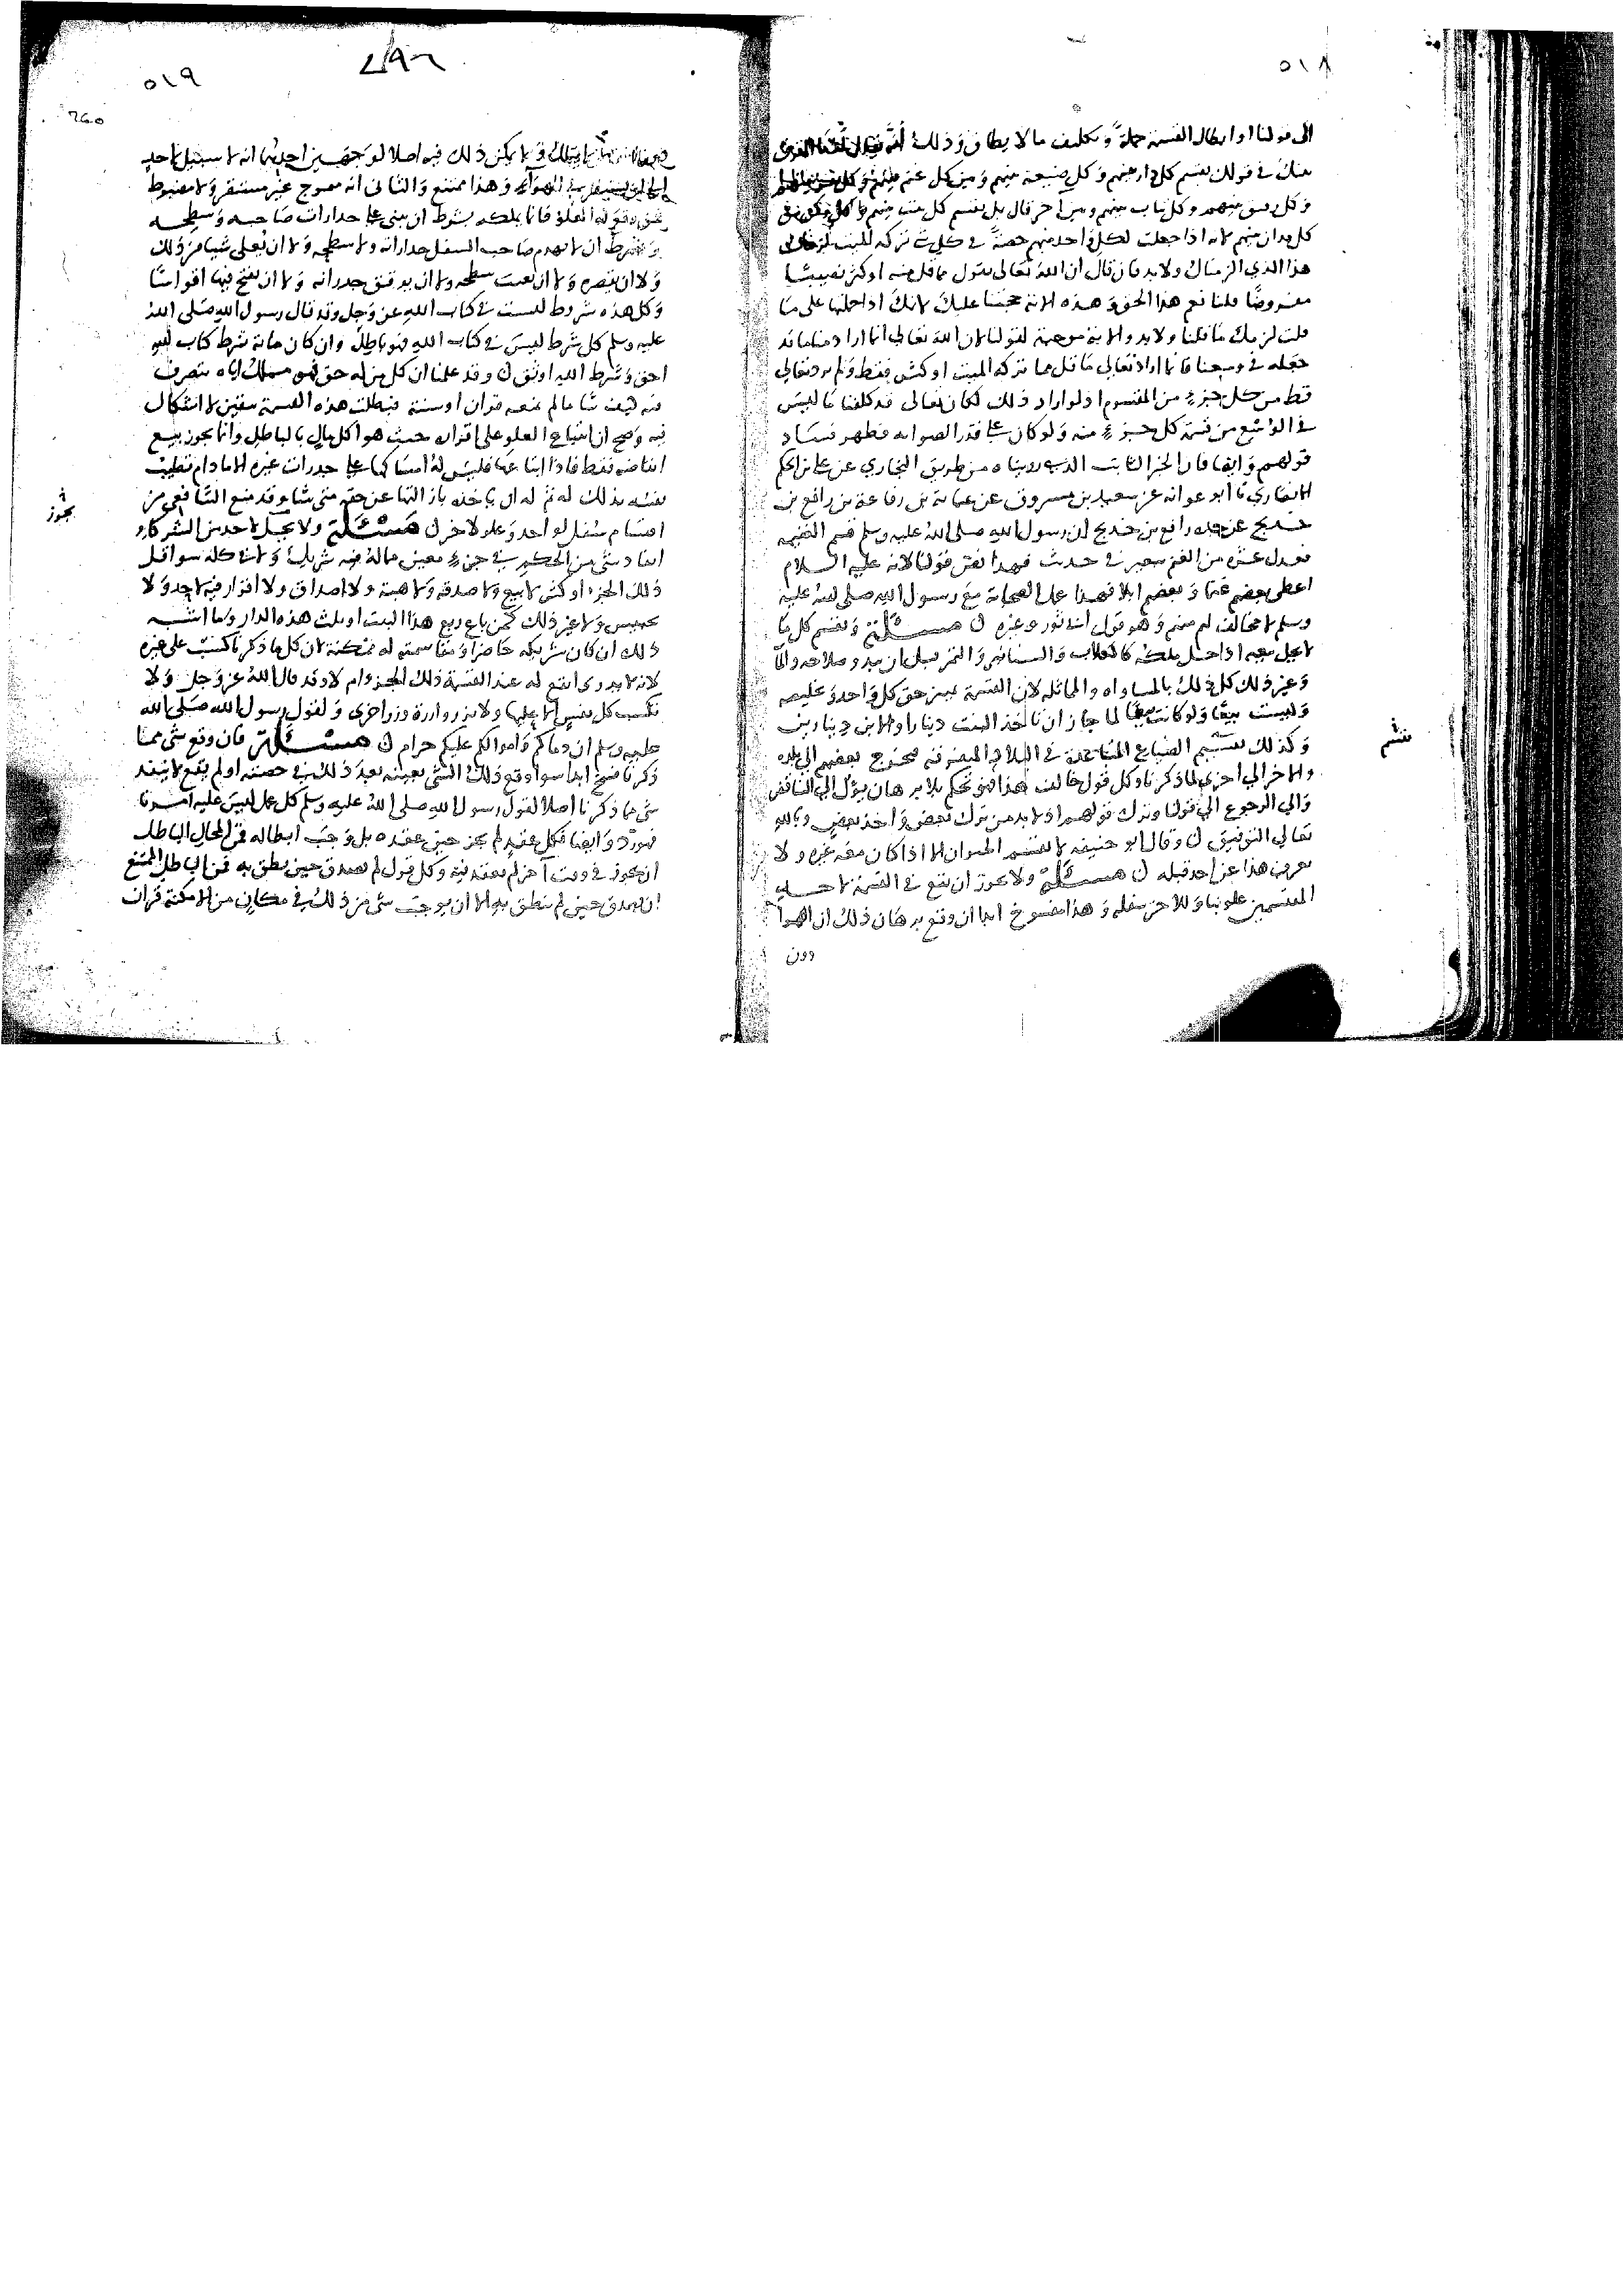 ٥١٨
الى قولنا او ابطال القسمة جملة وتكليف ما لا يطاق وذلك
منك في قولك يقسم كل ارض بينهم وكل ضيعة بينهم ومن كل غنم بينهم
وكل رقيق بينهم وكل ثياب بينهم وبين اخر قال بل يقسم كل بيت بينهم
كل مدان بينهم لانه اذا جعلت لكل واحد منهم حصة في كل شئ تركه الميت
هذا الذي الزمناك ولا بد فان قال ان الله تعالى يقول مما قل منه او كثر نصيبا
مفروضا قلنا نعم هذا الحق وهذه الاية حجتنا عليك لانك اذا حملتها على ما
قلت لزمك ما قلنا ولا بد والاية موجبة لقولنا لان الله تعالى انما اراد منا ما قد
جعله في وسعنا فانما اراد تعالى ما قل مما تركه الميت او كثر فقط ولم يرد تعالى
قط من كل جزء من المقسوم اذ لو اراد ذلك لكان تعالى قد كلفنا ما ليس
في الوسع من قسمة كل جزء منه ولو كان على قدر الصوابه فظهر فساد
قولهم وايضا فان الخبر الثابت الذي رويناه من طريق البخاري عن علي بن الحكم
الانصاري نا ابو عوانه عن سعيد بن مسروق عن عباية بن رفاعة بن رافع بن
خديج عن جده رافع بن خديج ان رسول الله صلى الله عليه وسلم قسم الغنيمه
فعدل عشره من الغنم ببعير في حديث فهذا نفس قولنا لانه عليه السلام
اعطى بعضهم غنما وبعضهم ابلا فهذا عمل الصحابة مع رسول الله صلى الله عليه
وسلم لا مخالف لهم منهم وهو قول ابي ثور وغيره ن مسئلة ويقسم كل ما
لا يحل بيعه اذا حل ملكه كالكلاب والسنانير والثمر قبل ان يبدو صلاحه والما
وغير ذلك كل ذلك بالمساواه والمماثله لان القسمة تمييز حق كل واحد وتخليصه
وليست بيعا ولو كانت بيعا لما جاز ان تاخذ البنت دينارا والابن دينارين
وكذلك تقسيم الضياع المتباعدة في البلاد المتفرقه فيخرج بعضهم الى بلده
والاخر الى اخرى لما ذكرنا وكل قول خالف هذا فهو تحكم بلا برهان يؤل الى التناقض
والى الرجوع الى قولنا وترك قولهم اذ لا بد من ترك بعض واخذ بعض وبالله
تعالى التوفيق ن وقال ابو حنيفه لا يقسم الحيوان الا اذا كان معه غيره ولا
يعرف هذا عن احد قبله ن مسئلة ولا يجوز ان يقع في القسمة لاحد
المقتسمين علو بناء وللاخر سفله وهذا مفسوخ ابدا ان وقع برهان ذلك ان الهوا
دون
نقسم
٥١٩
لا يتملك ولا يمكن ذلك فيه اصلا لوجهين احدهما انه لا سبيل لاحد
الى ان يستقر في الهوا وهذا ممتنع والثاني انه مموج غير مستقر ولا مضبوط
فمن وقع له العلو فانما يملكه بشرط ان يبنى على جدارات صاحبه وسطحه
وبشرط ان لا يهدم صاحب السفل جداراته ولا سطحه ولا ان يعلى شيا من ذلك
ولا ان يقصره ولا ان يعبث سطحه ولا ان يرقق جدرانه ولا ان يفتح فيها اقواسا
وكل هذه شروط ليست في كتاب الله عز وجل وقد قال رسول الله صلى الله
عليه وسلم كل شرط ليس في كتاب الله فهو باطل وان كان ماية شرط كتاب الله
احق وشرط الله اوثق ن وقد علمنا ان كل من له حق فهو مملك اياه يتصرف
فيه كيف شا ما لم يمنعه قران او سنة فبطلت هذه القسمة بيقين لا اشكال
فيه وصح ان ابتياع العلو على اقراره حيث هو اكل مال بالباطل وانما يجوز بيع
انقاضه فقط فاذا ابتاعها فليس له امساكها على جدرات غيره الا ما دام تطيب
نفسه بذلك له ثم له ان ياخذه بازالتها عن حقه متى شا وقد منع الشافعي من
اقتسام سفل لواحد وعلو لاخر ن مسئلة ولا يحل لاحد من الشركاء
انفاذ شئ من الحكم في جزء معين مما له فيه شريك ولا في كله سوا قل
ذلك الجزء او كثر لا بيع ولا صدقه ولا هبة ولا اصداق ولا اقرار فيه لاحد ولا
تحبيس ولا غير ذلك كمن باع ربع هذا البيت او ثلث هذه الدار وما اشبه
ذلك ان كان شريكه حاضرا او مقاسمته له ممكنة لان كل ما ذكرنا كسب على غيره
لانه لا يدرى ايقع له عند القسمة ذلك الجزء ام لا وقد قال الله عز وجل ولا
تكسب كل نفس الا عليها ولا تزر وازرة وزر اخرى ولقول رسول الله صلى الله
عليه وسلم ان دماكم واموالكم عليكم حرام ن مسئلة فان وقع شئ مما
ذكرنا فسخ ابدا سوا وقع ذلك الشئ بعينه بعد ذلك في حصته او لم يقع لا ينفذ
شئ مما ذكرنا اصلا لقول رسول الله صلى الله عليه وسلم كل عمل ليس عليه امرنا
فهو رد وايضا فكل عقد لم يجز حين عقده بل وجب ابطاله فمن المحال الباطل
ان يجوز في وقت اخر لم يعقد فيه وكل قول لم يصدق حين نطق به فمن الباطل الممتنع
ان يصدق حين لم ينطق به الا ان يوجب شئ من ذلك في مكان من الامكنة قران
يجوز